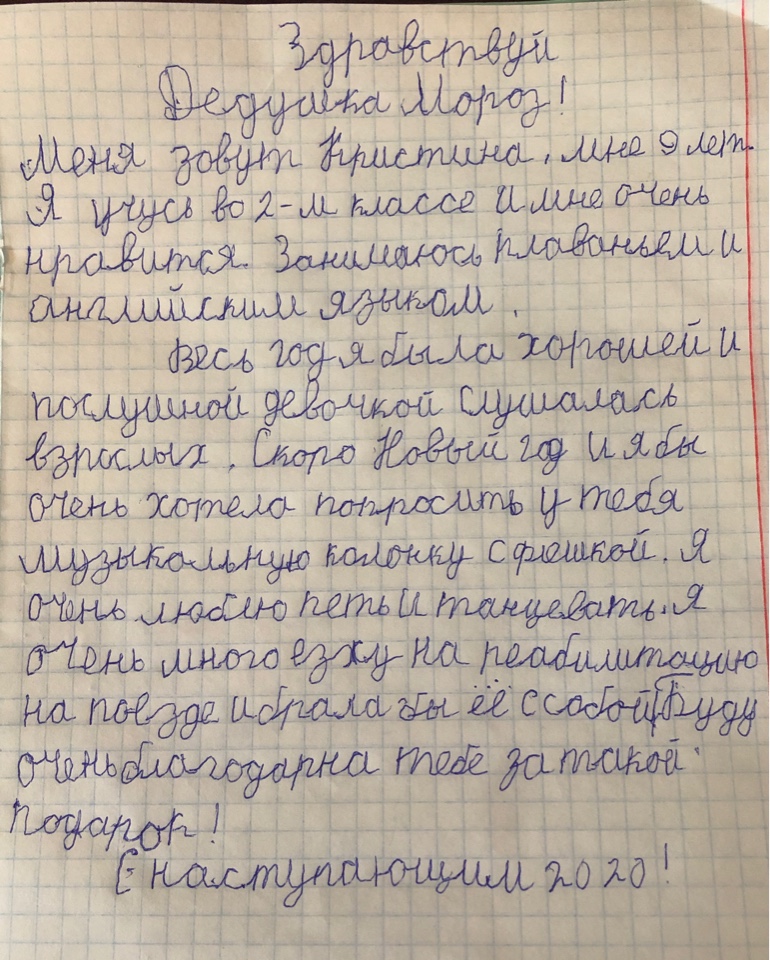 Здравствуй
Дедушка Мороз!
Меня зовут Кристина, мне 9 лет.
Я учусь во 2-м классе и мне очень
нравится. Занимаюсь плаваньем и
английским языком.
Весь год я была хорошей и
послушной девочкой слушалась
взрослых. Скоро Новый год и я бы
очень хотела попросить у тебя
музыкальную колонку с флешкой. Я
очень люблю петь и танцевать. Я
очень много езжу на реабилитацию
на поезде и брала бы её с собой. Буду
очень благодарна тебе за такой
подарок!
С наступающим 2020!